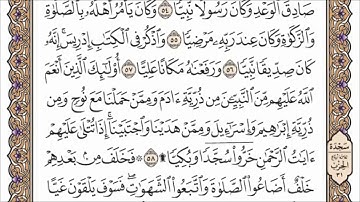 صَادِقَ الْوَعْدِ وَكَانَ رَسُولًا نَّبِيًّا ٥٤ وَكَانَ يَأْمُرُ أَهْلَهُ بِالصَّلَوٰةِ
وَالزَّكَوٰةِ وَكَانَ عِندَ رَبِّهِ مَرْضِيًّا ٥٥ وَاذْكُرْ فِي الْكِتَٰبِ إِدْرِيسَ إِنَّهُ
كَانَ صِدِّيقًا نَّبِيًّا ٥٦ وَرَفَعْنَٰهُ مَكَانًا عَلِيًّا ٥٧ أُوْلَٰٓئِكَ الَّذِينَ أَنْعَمَ
اللَّهُ عَلَيْهِم مِّنَ النَّبِيِّۦنَ مِن ذُرِّيَّةِ ءَادَمَ وَمِمَّنْ حَمَلْنَا مَعَ نُوحٍ وَمِن
ذُرِّيَّةِ إِبْرَٰهِيمَ وَإِسْرَٰٓءِيلَ وَمِمَّنْ هَدَيْنَا وَاجْتَبَيْنَآ إِذَا تُتْلَىٰ عَلَيْهِمْ
ءَايَٰتُ الرَّحْمَٰنِ خَرُّواْ سُجَّدًا وَبُكِيًّا ۩ ٥٨ فَخَلَفَ مِنۢ بَعْدِهِمْ
خَلْفٌ أَضَاعُواْ الصَّلَوٰةَ وَاتَّبَعُواْ الشَّهَوَٰتِ فَسَوْفَ يَلْقَوْنَ غَيًّا
سَجْدَة
الحزب
٣١